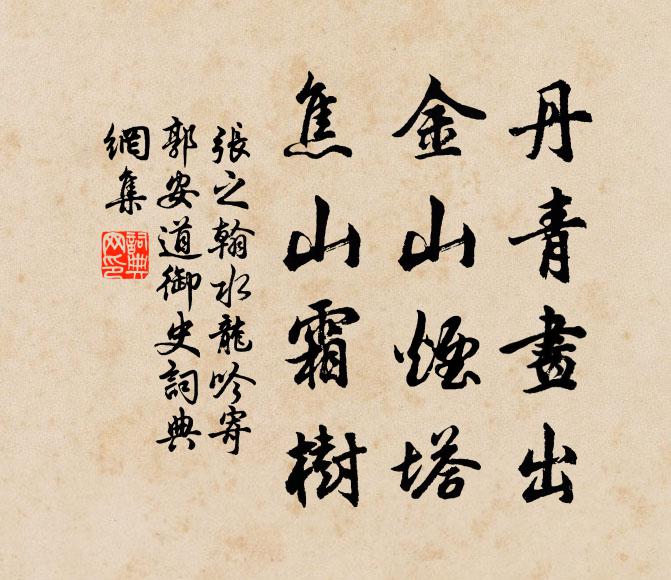 丹青畫出
金山煙塔
焦山霜樹
張之翰水龍吟寄
郭安道御史詞典
網集
詞典網印